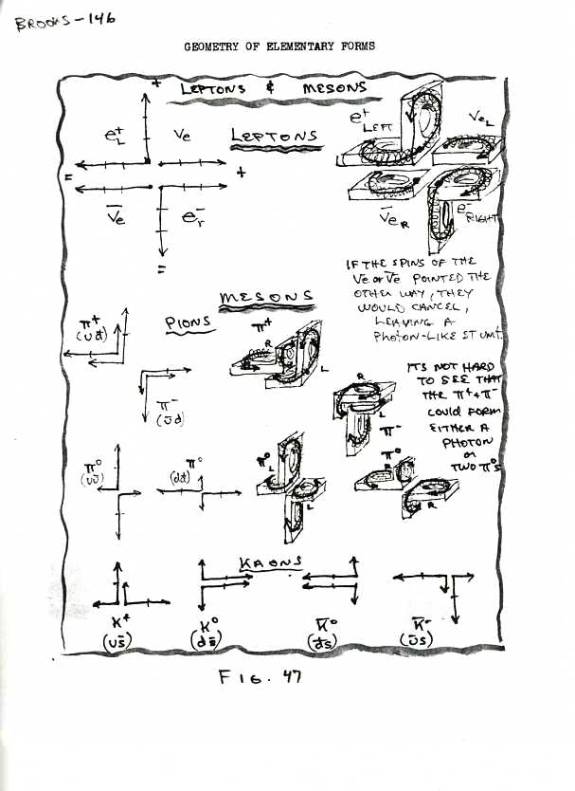 BROOKS-146
GEOMETRY OF ELEMENTARY FORMS
LEPTONS & MESONS
+
e⁺L
νe
LEPTONS
e⁺ LEFT
νeL
=
+
ν̅e
e⁻r
ν̅eR
e⁻ RIGHT
=
IF THE SPINS OF THE
νe or ν̅e POINTED THE
OTHER WAY, THEY
WOULD CANCEL,
LEAVING A
PHOTON-LIKE STUNT.
MESONS
PIONS
π⁺
(ud̅)
π⁺
R
L
π⁻
(u̅d)
R
L
π⁻
IT'S NOT HARD
TO SEE THAT
THE π⁺ + π⁻
COULD FORM
EITHER A
PHOTON
or
TWO π⁰s
π⁰
(uu̅)
π⁰
(dd̅)
π⁰
L
L
π⁰
R
R
KAONS
K⁺
(us̅)
K⁰
(ds̅)
K̅⁰
(d̅s)
K̅⁻
(u̅s)
FIG. 47